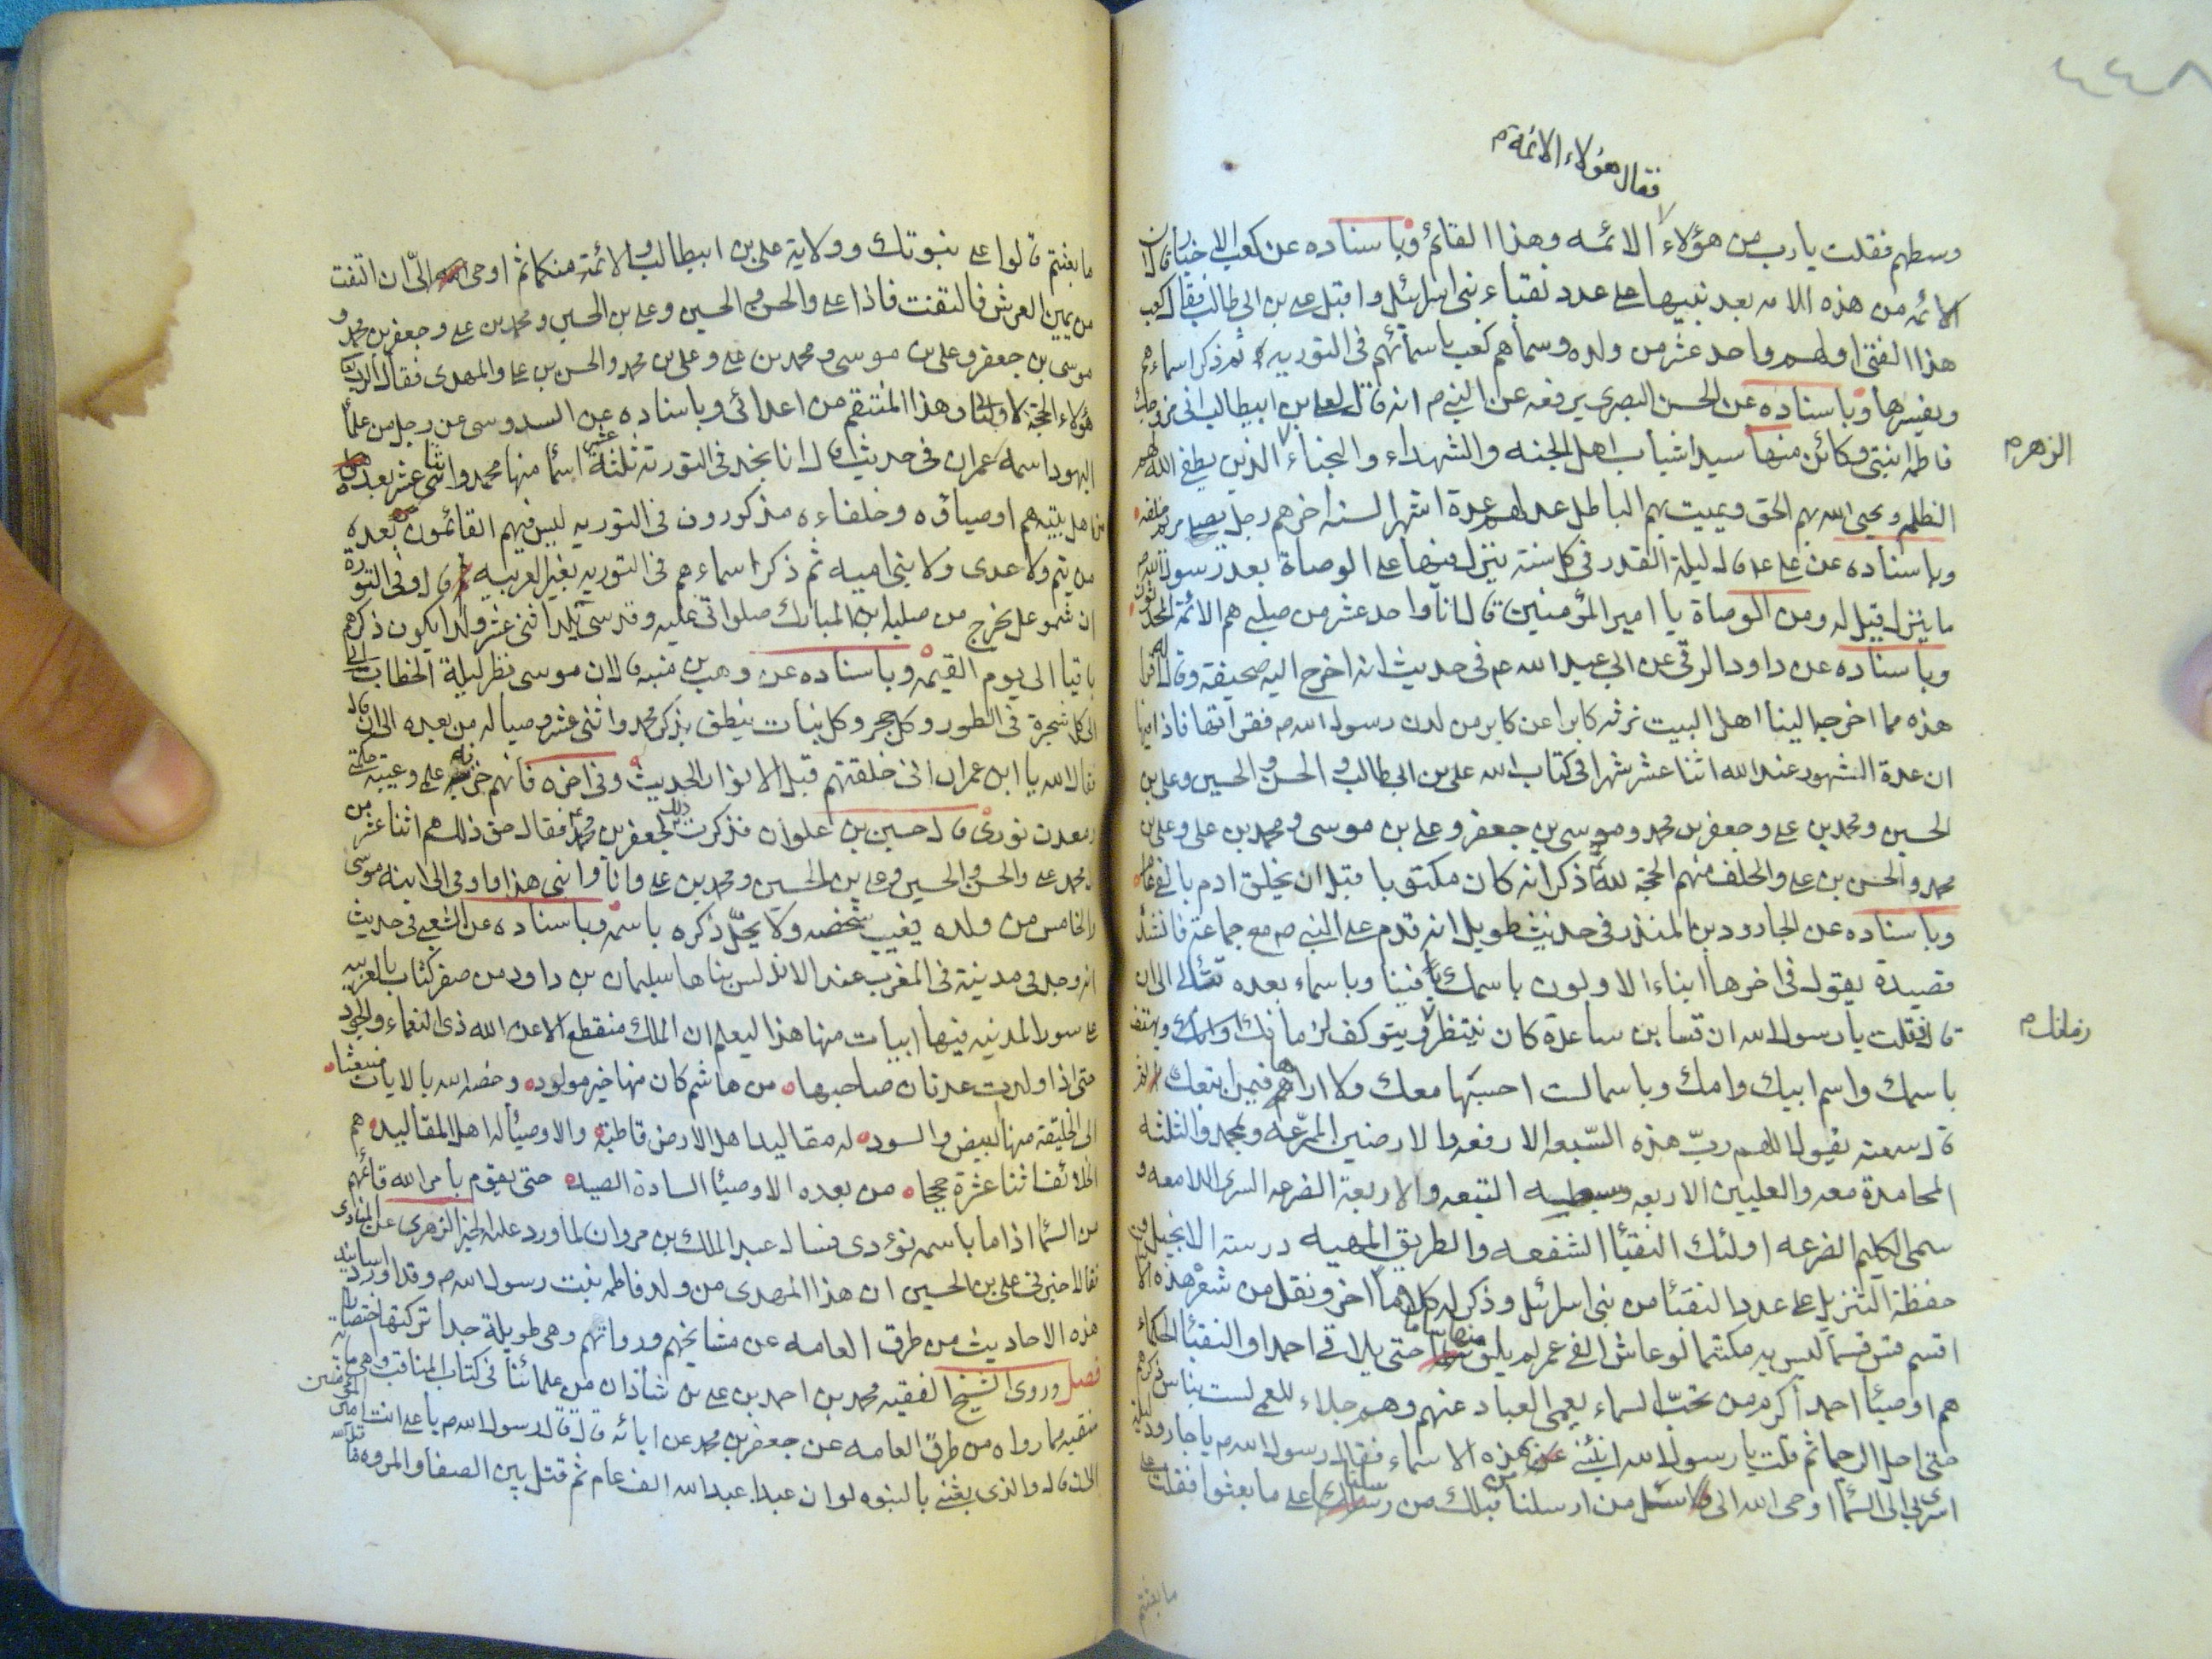 ٤٤٨
فقال هؤلاء الائمة م
وسطهم فقلت يارب من هؤلاء الائمه وهذا القائم وباسناده عن كعب الاخبار قال ان
الائمه من هذه الامه بعد نبيها على عدد نقباء بنى اسرائيل واقبل على بن ابى طالب فقال كعب
هذا المقفى اولهم واحد عشر من ولده وسماهم كعب باسمائهم فى التوريه ثم ذكر اسماءهم
وباسناده عن الحسن البصرى يرفعه عن النبى م انه قال لعلى بن ابيطالب انى مزوجك
فاطمه ابنتى وكائن منهما سيدا شباب اهل الجنه والشهداء والنجباء الذين يطفى الله بهم
الزهر م
الظلم ويحيى الله بهم الحق ويميت بهم الباطل عددهم عدة اشهر السنه اخرهم رجل يصلى مريم خلفه
وباسناده عن على عم قال ليلة القدر فى كل سنة ينزل فيها على الوصاة بعد رسول الله م
ما ينزل قيل له ومن الوصاة يا امير المؤمنين قال انا واحد عشر من صلبى هم الائمة المحدثون
وباسناده عن داود الرقى عن ابى عبد الله عم فى حديث انه اخرج اليه صحيفة وقال اقرا
هذه مما اخرج الينا اهل البيت نرثه كابرا عن كابر من لدن رسول الله م فقراتها فاذا فيها
ان عدة الشهور عند الله اثنا عشر شهرا فى كتاب الله على بن ابى طالب و الحسن و الحسين وعلى بن
الحسين ومحمد بن على وجعفر بن محمد وموسى بن جعفر وعلى بن موسى ومحمد بن على وعلى بن
محمد والحسن بن على والخلف منهم الحجة لله ثم ذكر انه كان مكتوبا قبل ان يخلق ادم بالفى عام
وباسناده عن الجارود بن المنذر فى حديث طويل انه قدم على النبى ص مع جماعة فانشد
قصيدة يقول فى اخرها انباء الاولون باسمك فينا وباسماء بعده الى ان
قال فقلت يا رسول الله ان قسا بن ساعدة كان ينتظر زمانك ويتوكف ويهتف
زمانك م
باسمك واسم ابيك وامك وباسما لست احسبها معك ولا اراها فيمن اتبعك
سمعته يقول اللهم ربّ هذه السّبعه الارفعه والارضين الممرعه وبمحمد والثلثه
المحامدة معه والعليين الاربعه وسبطيه التبعه والاربعة الفرعه السرى اللامعه و
سمى الكليم الضرعه اولئك النقبأ الشفعه والطريق المهيعه درسته الانجيل و
حفظة التنزيل على عدد النقبأ من بنى اسرائيل وذكر له كلاما اخر ونقل من شعر هذه
اقسم قس قسما ليس به مكتتما لو عاش الفى عمر لم يلق منها ساما حتى يلاقى احمدا والنقبأ الحكماء
هم اوصيأ احمد اكرم من تحت السماء يعمى العباد عنهم وهم جلاء للعمى لست بناس ذكرهم
حتى احل الرجما ثم قلت يا رسول الله انبئنى عن هذه الاسماء فقال رسول الله م يا جارود ليلة
اسرى بى الى السمأ اوحى الله الى واسئل من ارسلنا من قبلك من رسلنا على ما بعثوا فقلت
ما بعثتم
ما بعثتم قالوا على نبوتك وولاية على بن ابيطالب والائمة منكما ثم اوحى الىّ ان التفت
من يمين العرش فالتفت فاذا على والحسن و الحسين وعلى بن الحسين ومحمد بن على وجعفر بن محمد و
موسى بن جعفر وعلى بن موسى ومحمد بن على وعلى بن محمد والحسن بن على والمهدى فقال الرب تعالى
هؤلاء الحجة لاوليائى وهذا المنتقم من اعدائى وباسناده عن السدوسى عن رجل من علمأ
اليهود اسمه عمران فى حديث قال انا نجد فى التورته ثلثة عشر اسما منها محمد واثنى عشر بعده
من اهل بيته هم اوصياؤه وخلفاءه مذكورون فى التوريه ليس فيهم القائمون بعده
من تيم ولا عدى ولا بنى اميه ثم ذكر اسماءهم فى التوريه بغير العربيه قال وفى التورة
ان شموعل يخرج من صلبه ابن المبارك صلواتى عليه وقدسى يلد اثنى عشر ولدا يكون ذكرهم
باقيا الى يوم القيمه وباسناده عن وهب بن منبه قال ان موسى نظر ليلة الخطاب
الى كل شجرة فى الطور وكل حجر وكل نبات ينطق بذكر محمد واثنى عشر وصيا له من بعده الى ان قال
فقال الله يا ابن عمران انى خلقتهم قبل الانوار الحديث وفى اخره فانهم خزنة علمى وعيبة حكمتى
ومعدن نورى قال حسين بن علوان فذكرت ذلك لجعفر بن محمد فقال حق ذلك هم اثنا عشر من
ال محمد على والحسن و الحسين وعلى بن الحسين ومحمد بن على وانا وابنى هذا واومى الى ابنه موسى
والخامس من ولده يغيب شخصه ولا يحلّ ذكره باسمه وباسناده عن الشعبى فى حديث
انه وجد فى مدينة فى المغرب عند الاندلس بناها سليمان بن داود من صفر كتاب بالعربيه
على سور المدينه فيها ابيات منها هذا ليعلم ان الملك منقطع الا عن الله ذى النعماء والجود
حتى اذا ولدت عدنان صاحبها من هاشم كان منها خير مولود وخصه الله بالايات منبعثا
الى الخليقة منها البيض والسود له مقاليد اهل الارض قاطبة والاوصيأ له اهل المقاليد هم
الخلائف اثنا عشرة حججا من بعده الاوصيأ السادة الصيد حتى يقوم بامر الله قائمهم
من السمأ اذا ما باسمه نؤدى فسال عبد الملك بن مروان لما ورد عليه الخبر الزهرى عن المنادى
فقال اخبرنى على بن الحسين ان هذا المهدى من ولد فاطمه بنت رسول الله ص وقد اورد اسانيد
هذه الاحاديث من طرق العامه عن مشايخهم ورواتهم وهى طويلة جدا تركتها اختصارا
فصل وروى الشيخ الفقيه محمد بن احمد بن على بن شاذان من علمائنا فى كتاب المناقب وهى مائة
منقبه مما رواه من طرق العامه عن جعفر بن محمد عن ابائه قال قال رسول الله م يا على انت امير المؤمنين
الى ان قال والذى بعثنى بالنبوه لو ان عبدا عبد الله الف عام ثم قتل بين الصفا والمروه